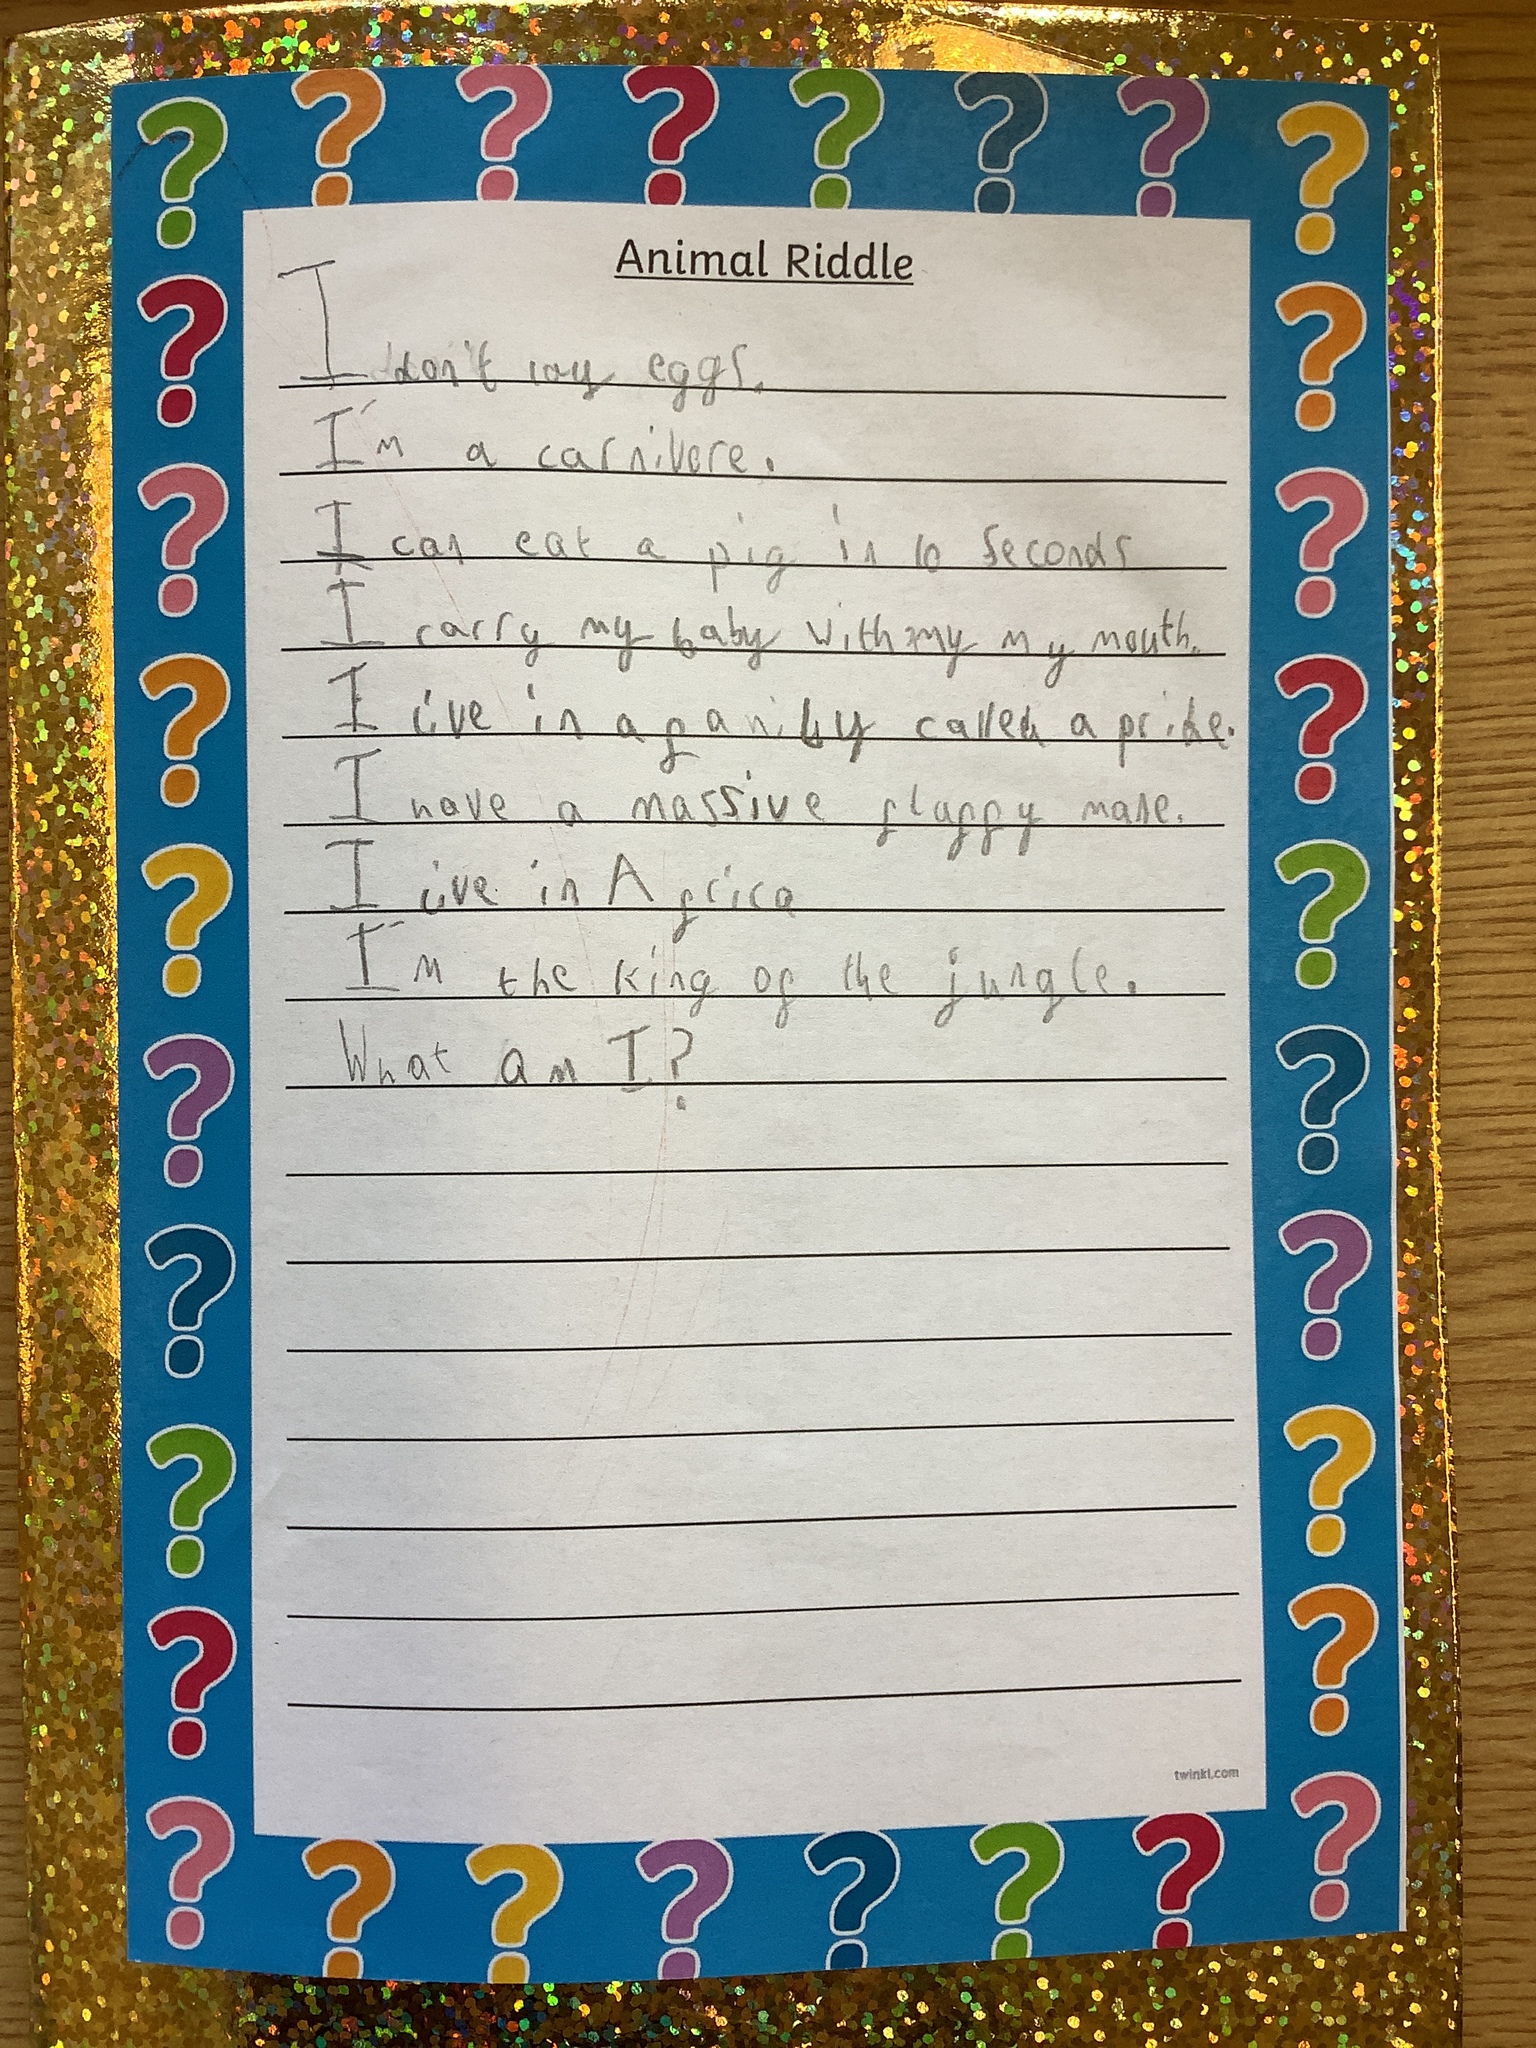 Animal Riddle
I don't lay eggs.
I'm a carnivore.
I can eat a pig in 10 seconds
I carry my baby with my my mouth.
I live in a family called a pride.
I have a massive fluffy mane.
I live in Africa
I'm the king of the jungle.
What am I?
twinkl.com